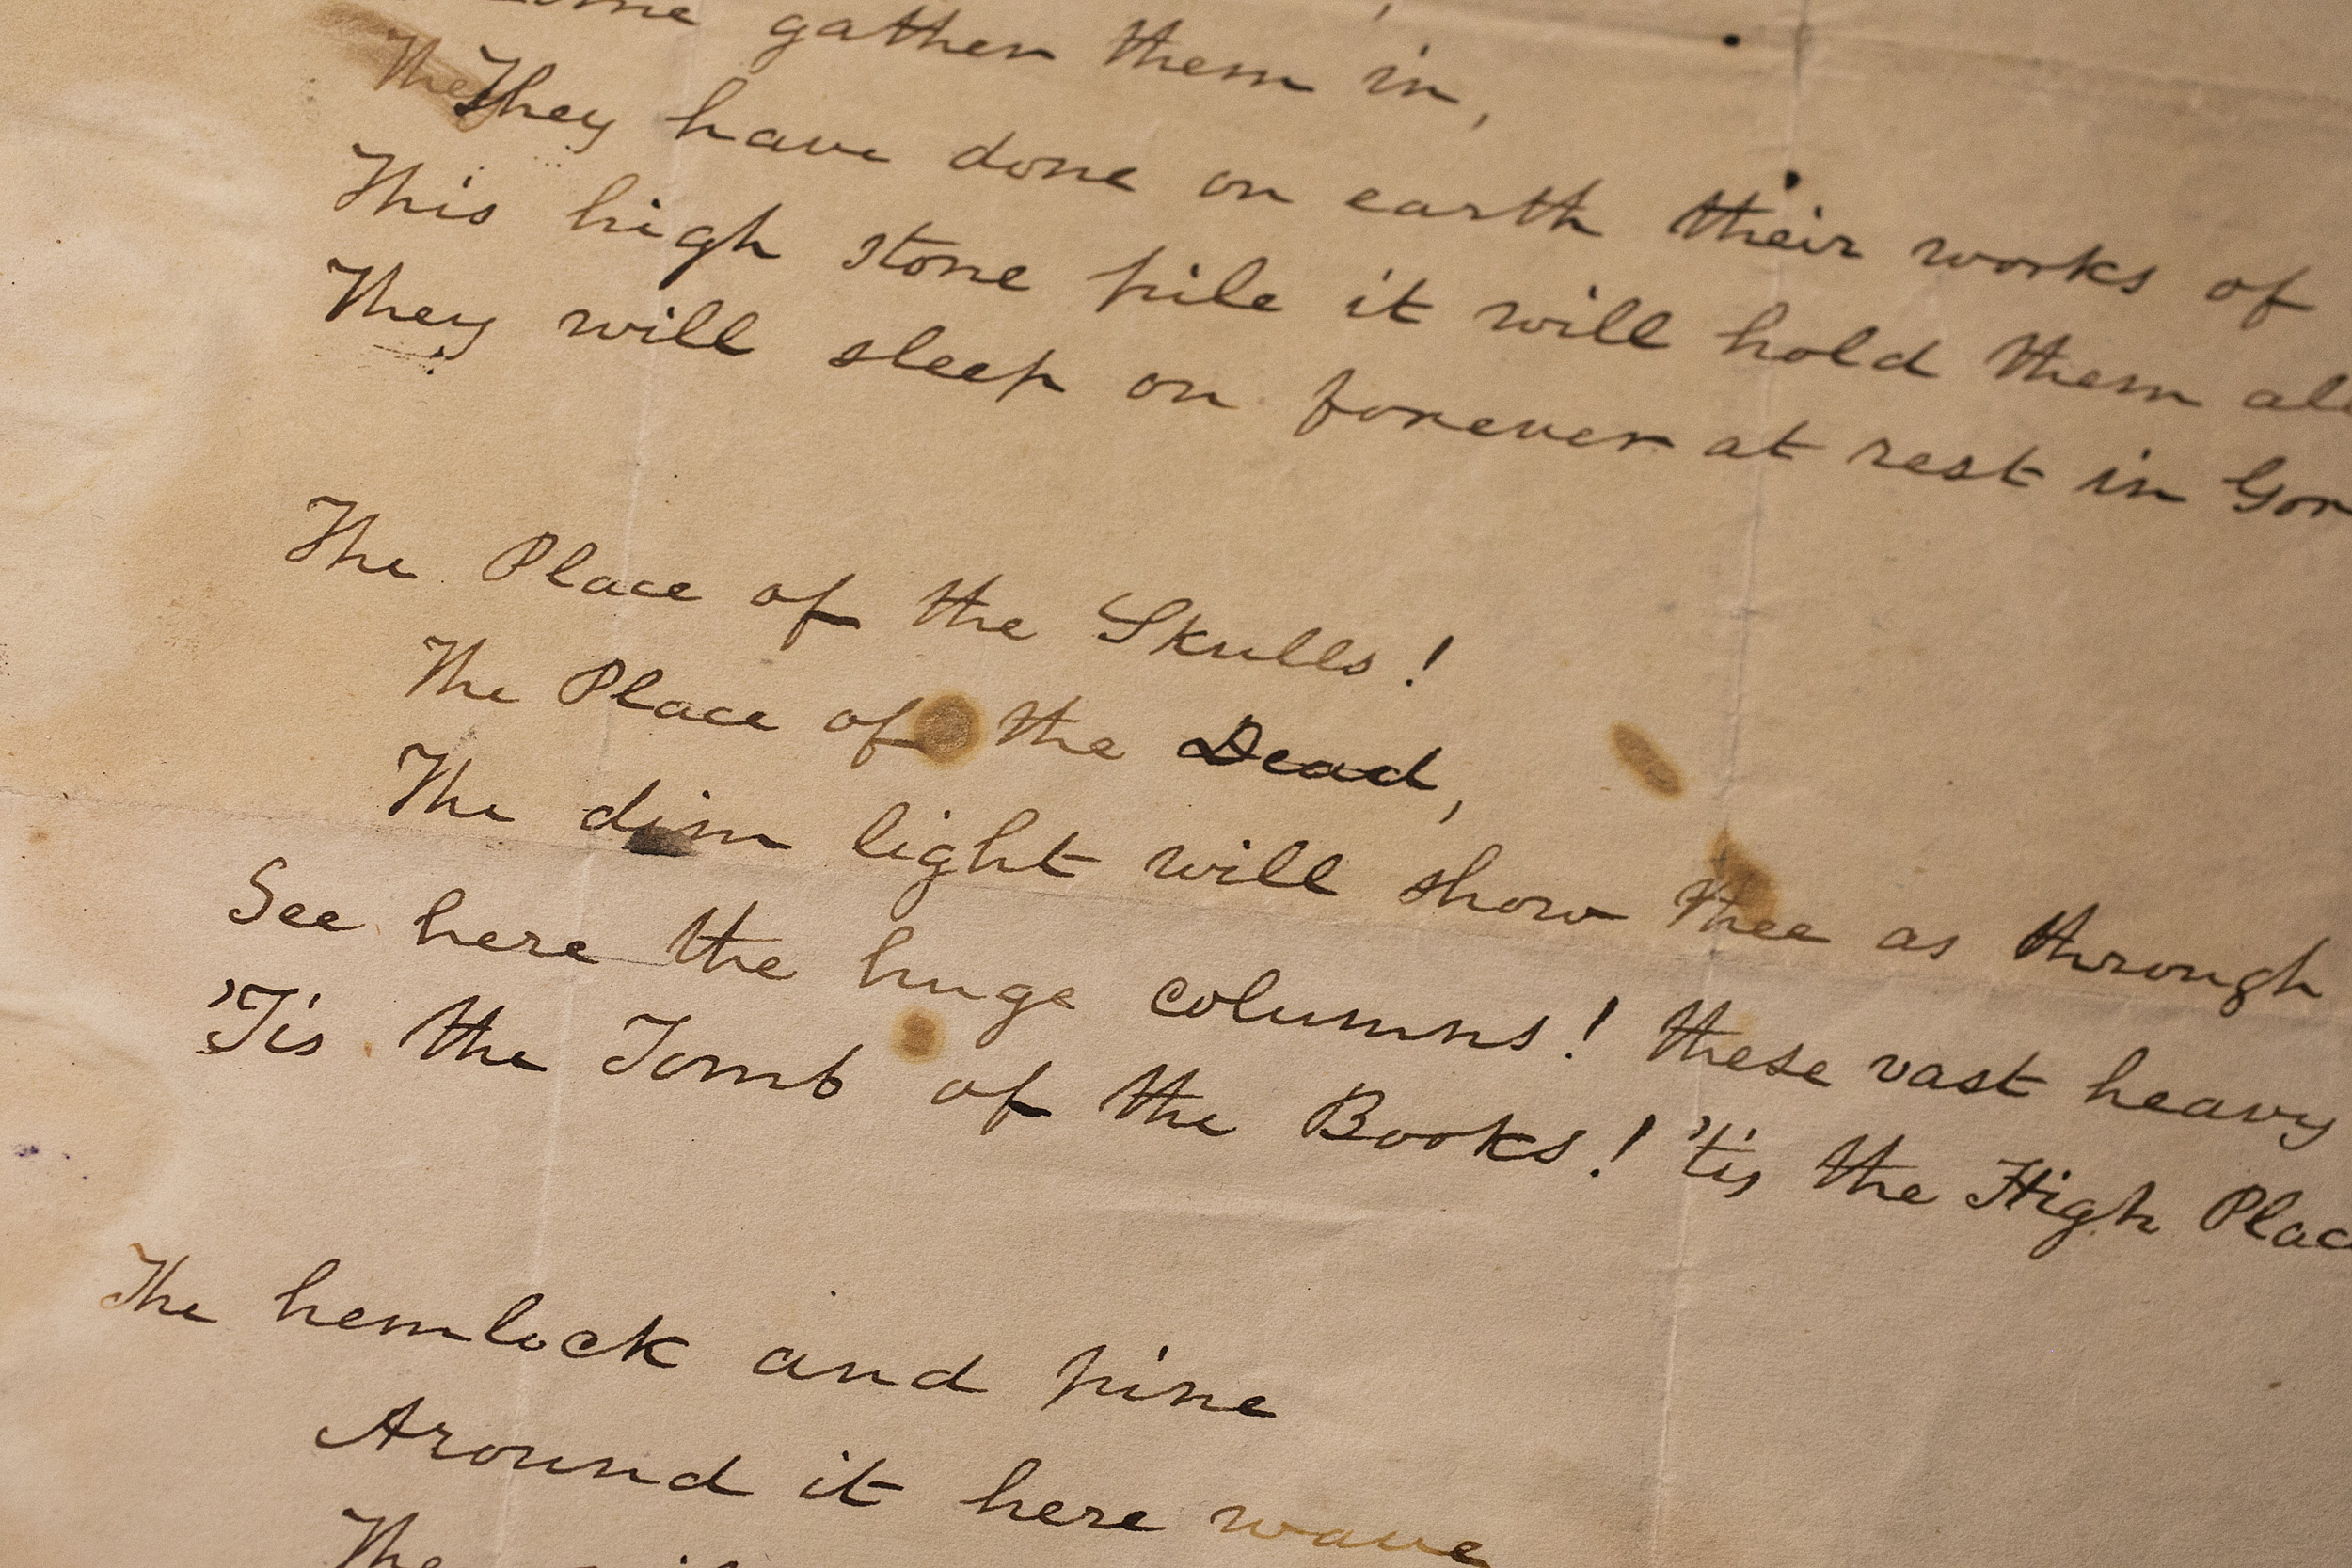 gather them in,
They have done on earth their works of
This high stone pile it will hold them
They will sleep on forever at rest in
The Place of the Skulls!
The Place of the Dead,
The dim light will show thee as through
See here the huge columns! these vast heavy
'Tis the Tomb of the Books! 'tis the High
The hemlock and pine
Around it here wave
The